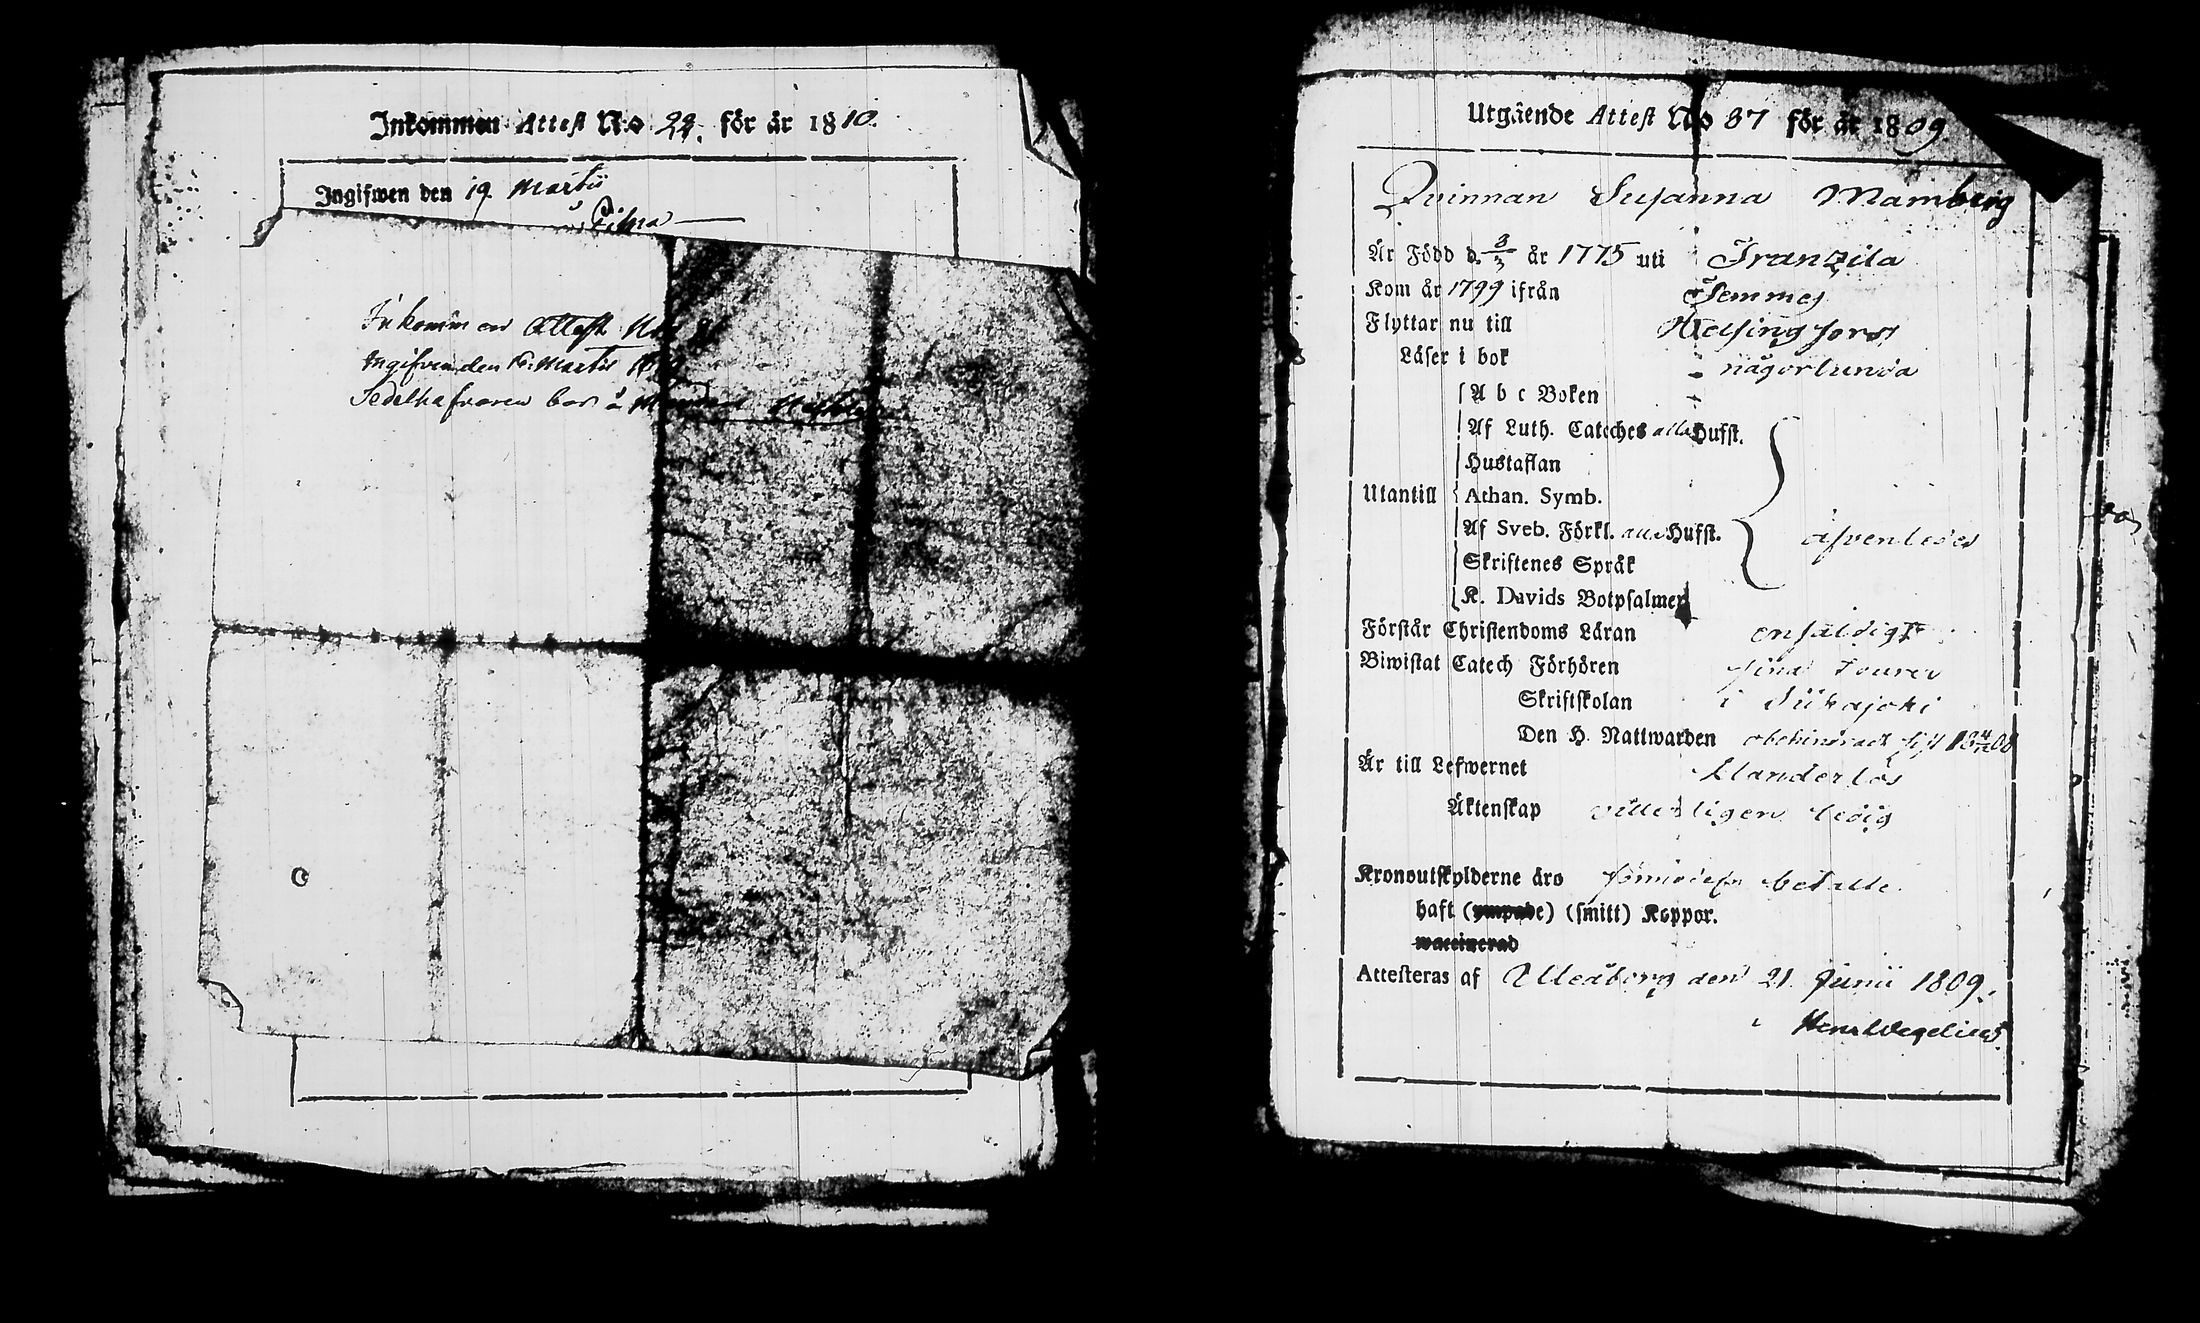 Inkommen Attest No 22. för år 1810.
Ingifwen den 19 Martii
Inkommen Attest No
Ingifven den Martii
Sedelhafvaren bor å
Utgående Attest No 87 för år 1809
Qvinnan Susanna Mamberg
Är Född d. 8/3 år 1775 uti Frantzila
Kom år 1799 ifrån Temmes
Flyttar nu till Helsingfors
Läser i bok någorlunda
A b c Boken
Af Luth. Cateches alla Hufst.
Hustaflan
Utantill Athan. Symb.
Af Sveb. Förkl. alla Hufst. äfvenledes
Skriftenes Språk
K. Davids Botpsalmer
Förstår Christendoms Läran enfaldigt
Biwistat Catech Förhören sina tourer
Skriftskolan i Siikajoki
Den H. Nattwarden obehindradt sist
Är till Lefwernet klanderlös
Äktenskap ledig
Kronoutskylderne äro betalte.
haft (ympade) (smitt) Koppor.
waccinerad
Attesteras af Uleåborg den 21 Junii 1809.
Henr Wegelius.